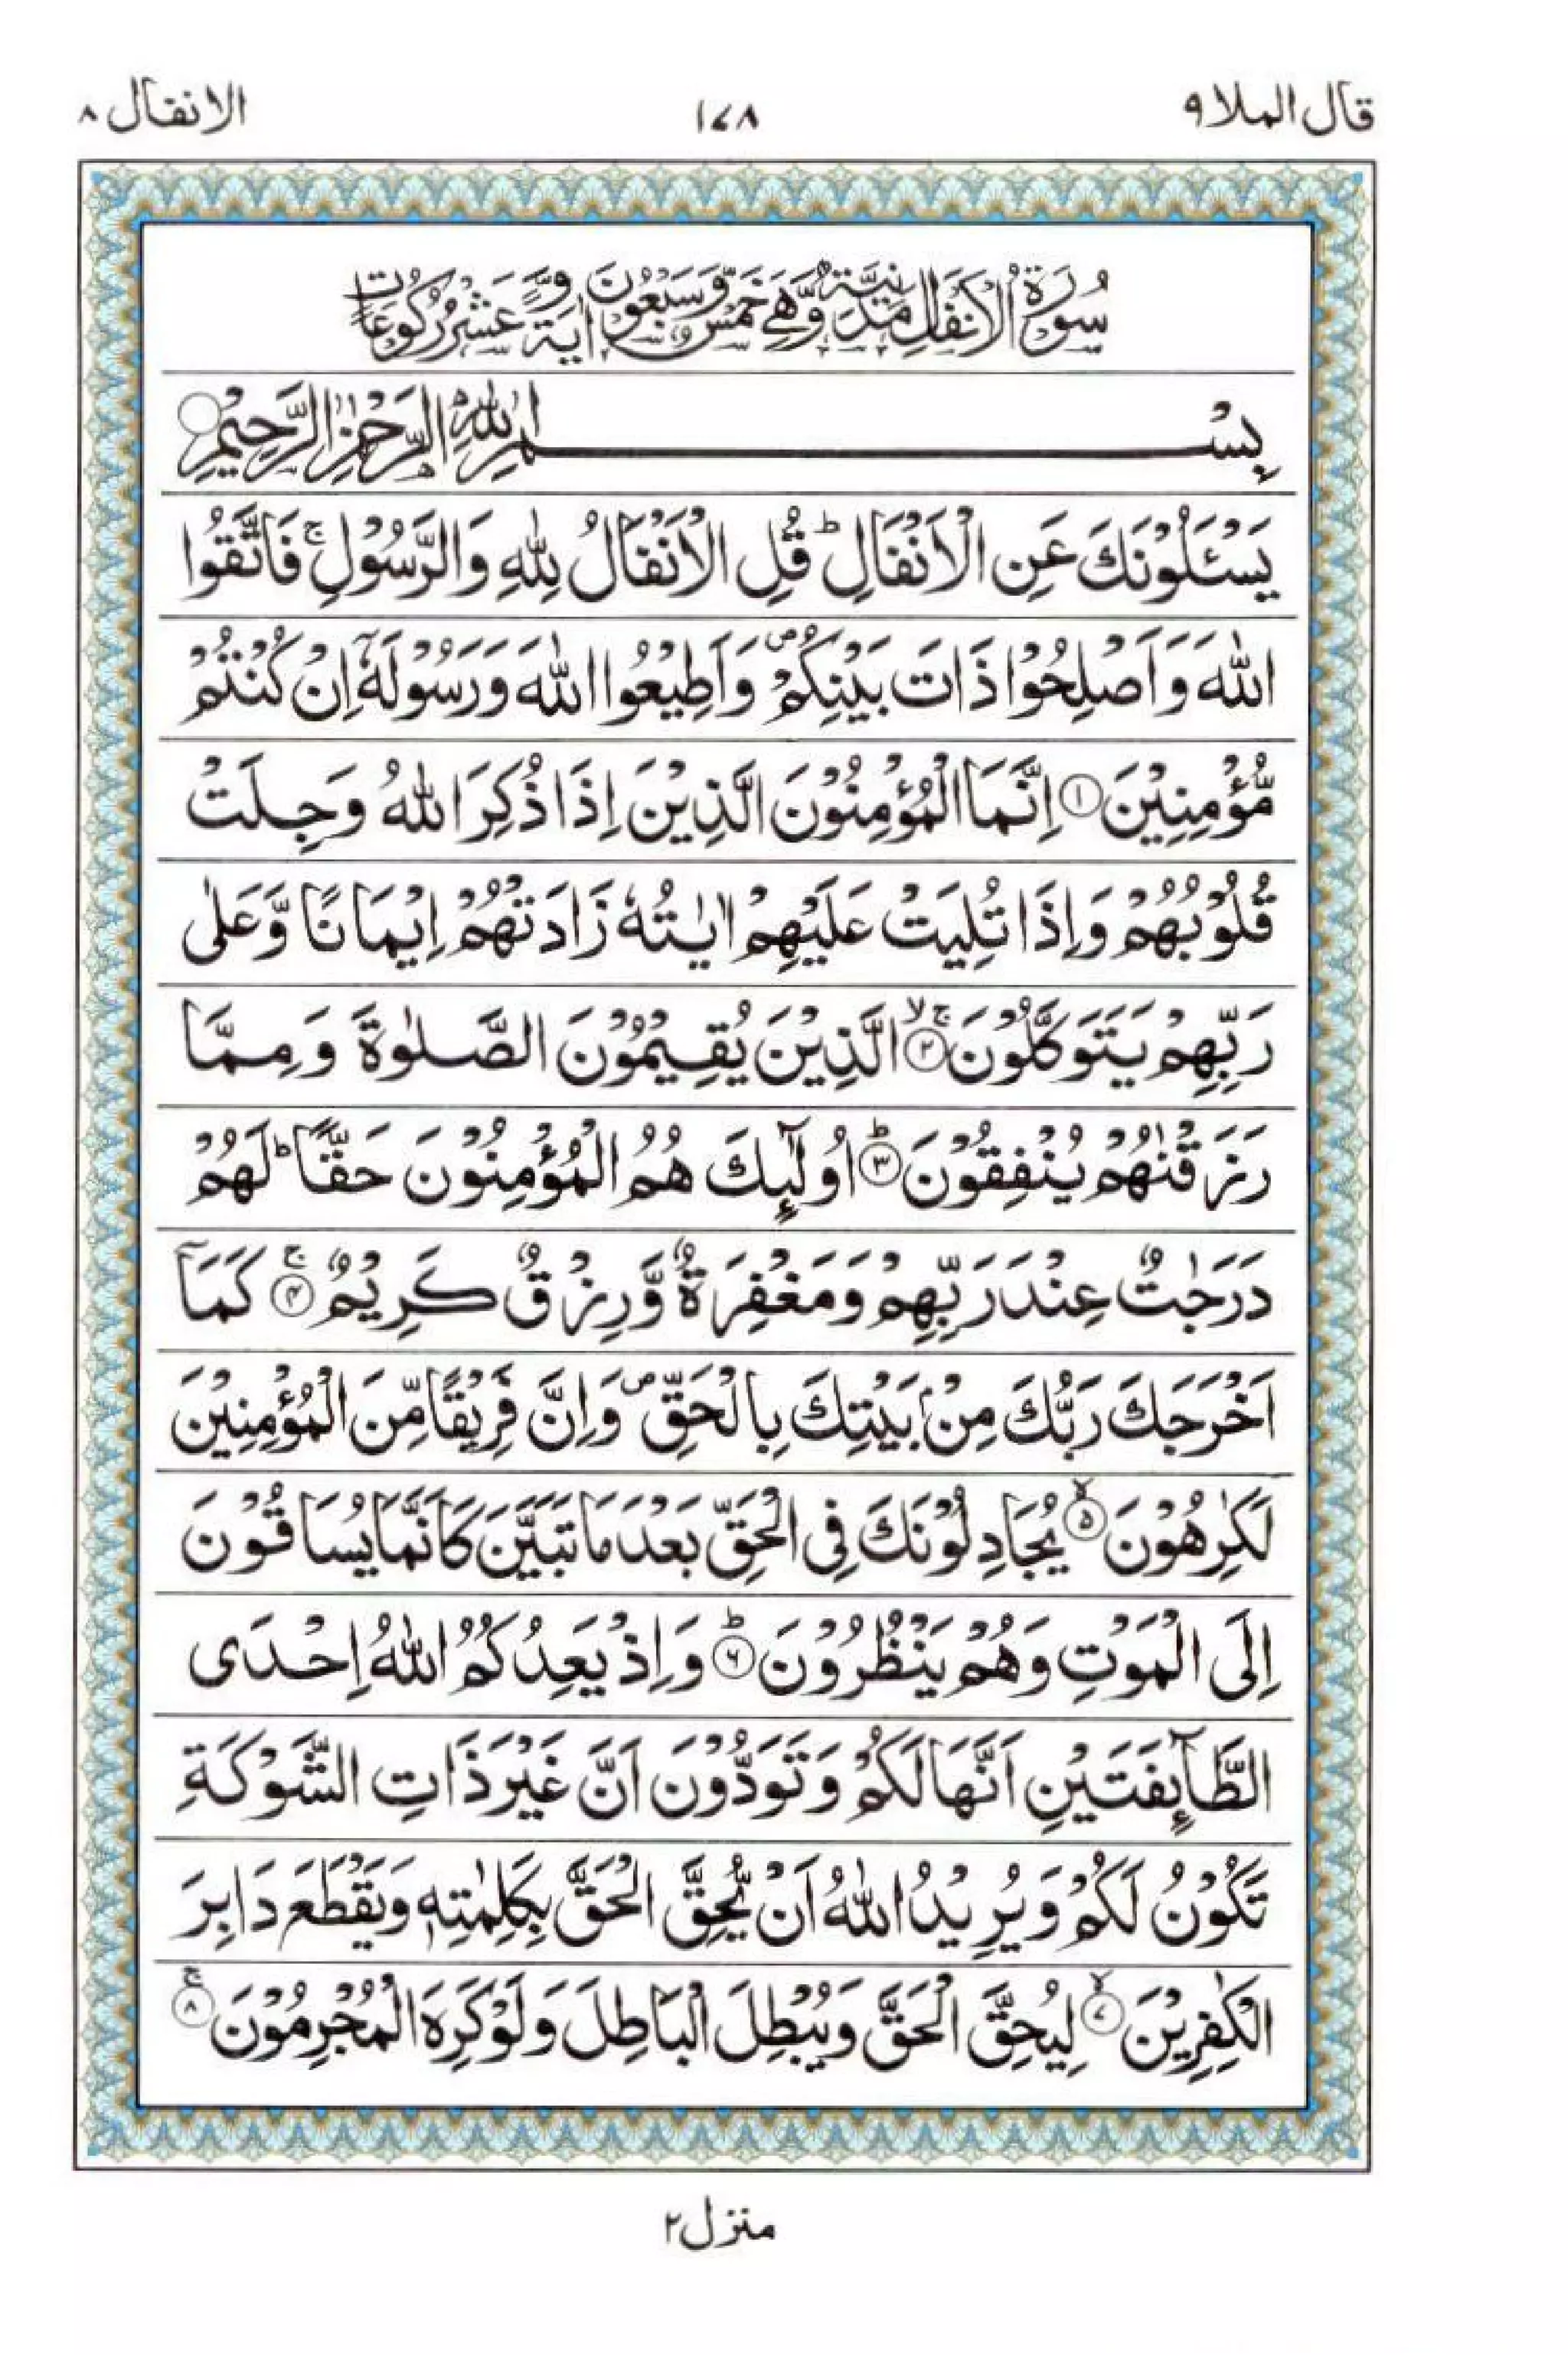 قال الملا ٩
١٧٨
الانفال ٨
سُوْرَةُ الْاَنْفَالِ مَدَنِيَّةٌ وَّهِيَ خَمْسٌ وَّسَبْعُوْنَ اٰيَةً وَّعَشْرُ رُكُوْعَاتٍ
بِسْمِ اللّٰهِ الرَّحْمٰنِ الرَّحِيْمِ ۝
يَسْـَٔلُوْنَكَ عَنِ الْاَنْفَالِ ؕ قُلِ الْاَنْفَالُ لِلّٰهِ وَالرَّسُوْلِ ۚ فَاتَّقُوا
اللّٰهَ وَاَصْلِحُوْا ذَاتَ بَيْنِكُمْ ۪ وَاَطِيْعُوا اللّٰهَ وَرَسُوْلَهٗۤ اِنْ كُنْتُمْ
مُّؤْمِنِيْنَ ۝١ اِنَّمَا الْمُؤْمِنُوْنَ الَّذِيْنَ اِذَا ذُكِرَ اللّٰهُ وَجِلَتْ
قُلُوْبُهُمْ وَاِذَا تُلِيَتْ عَلَيْهِمْ اٰيٰتُهٗ زَادَتْهُمْ اِيْمَانًا وَّعَلٰى
رَبِّهِمْ يَتَوَكَّلُوْنَ ۝٢ۚۖ الَّذِيْنَ يُقِيْمُوْنَ الصَّلٰوةَ وَمِمَّا
رَزَقْنٰهُمْ يُنْفِقُوْنَ ۝٣ؕ اُولٰٓئِكَ هُمُ الْمُؤْمِنُوْنَ حَقًّا ؕ لَهُمْ
دَرَجٰتٌ عِنْدَ رَبِّهِمْ وَمَغْفِرَةٌ وَّرِزْقٌ كَرِيْمٌ ۝٤ۚ كَمَاۤ
اَخْرَجَكَ رَبُّكَ مِنْۢ بَيْتِكَ بِالْحَقِّ ۪ وَاِنَّ فَرِيْقًا مِّنَ الْمُؤْمِنِيْنَ
لَكٰرِهُوْنَ ۝٥ۙ يُجَادِلُوْنَكَ فِى الْحَقِّ بَعْدَ مَا تَبَيَّنَ كَاَنَّمَا يُسَاقُوْنَ
اِلَى الْمَوْتِ وَهُمْ يَنْظُرُوْنَ ۝٦ؕ وَاِذْ يَعِدُكُمُ اللّٰهُ اِحْدَى
الطَّآئِفَتَيْنِ اَنَّهَا لَكُمْ وَتَوَدُّوْنَ اَنَّ غَيْرَ ذَاتِ الشَّوْكَةِ
تَكُوْنُ لَكُمْ وَيُرِيْدُ اللّٰهُ اَنْ يُّحِقَّ الْحَقَّ بِكَلِمٰتِهٖ وَيَقْطَعَ دَابِرَ
الْكٰفِرِيْنَ ۝٧ۙ لِيُحِقَّ الْحَقَّ وَيُبْطِلَ الْبَاطِلَ وَلَوْ كَرِهَ الْمُجْرِمُوْنَ ۝٨ۚ
منزل ٢